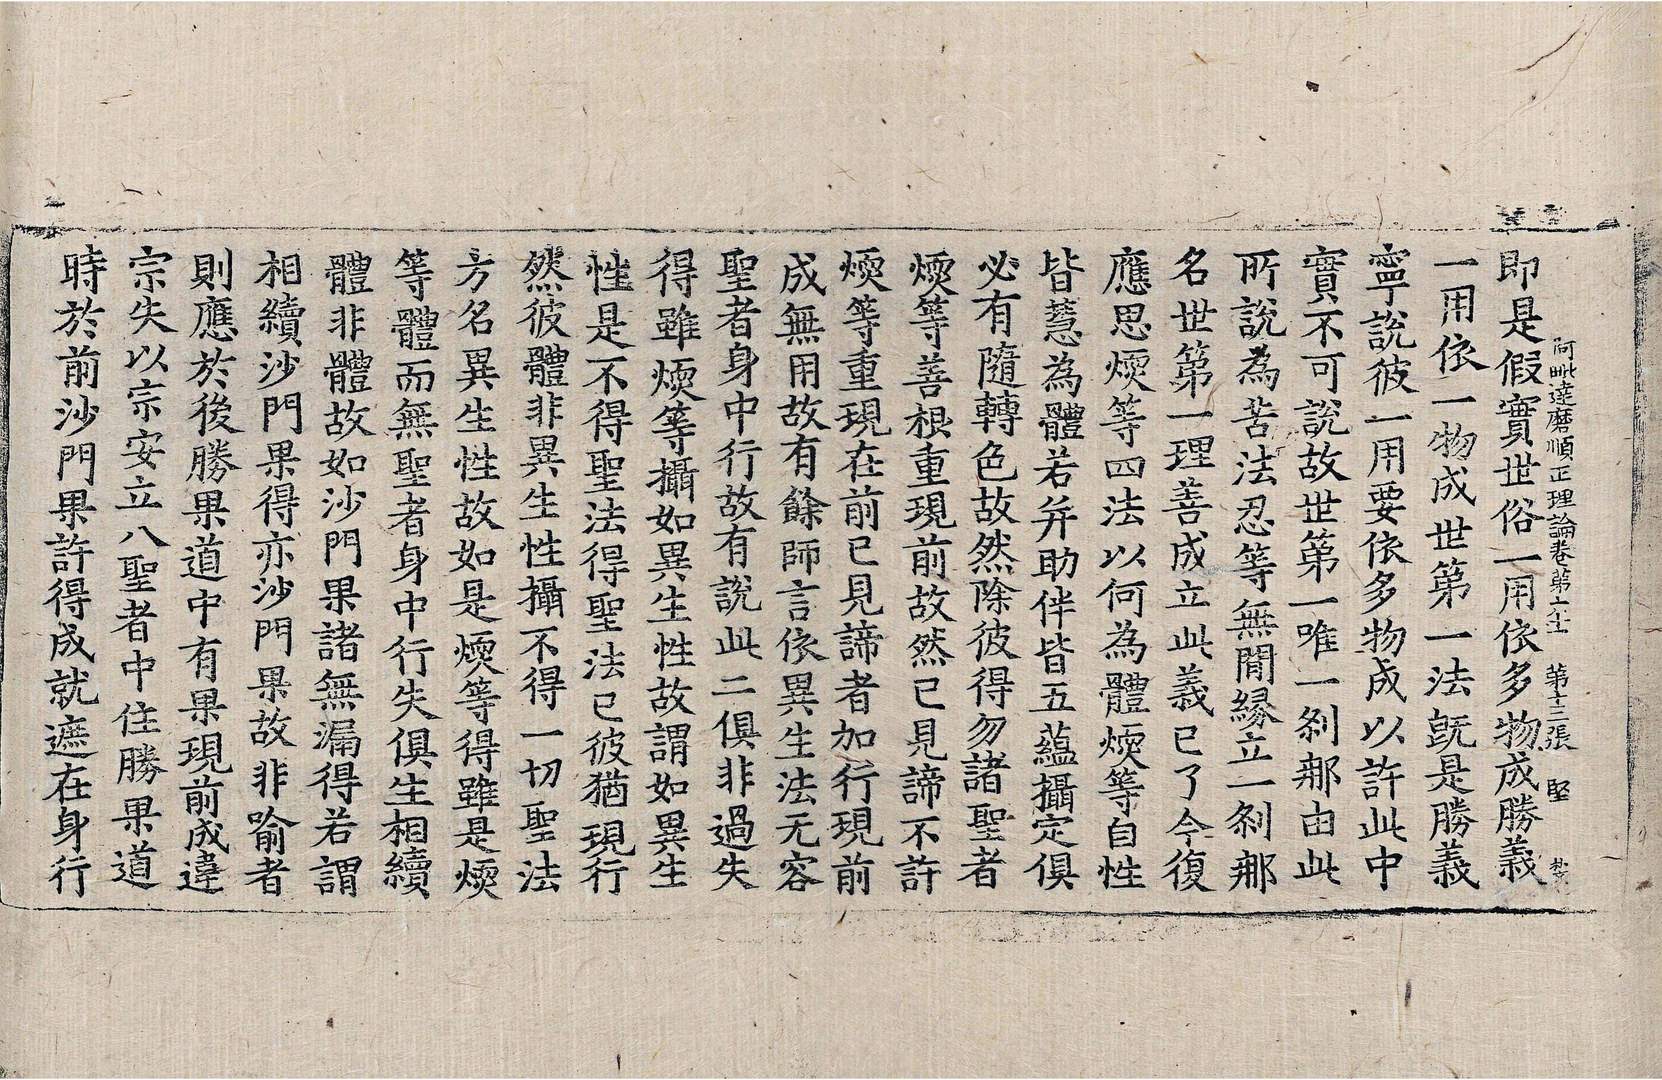 阿毗達磨順正理論卷第六十一 第十二張 堅
即是假實世俗一用依多物成勝義
一用依一物成世第一法旣是勝義
寧說彼一用要依多物成以許此中
實不可說故世第一唯一刹那由此
所說為苦法忍等無間緣立一刹那
名世第一理善成立此義已了今復
應思煗等四法以何為體煗等自性
皆慧為體若并助伴皆五蘊攝定俱
必有隨轉色故然除彼得勿諸聖者
煗等善根重現前故然已見諦不許
煗等重現在前已見諦者加行現前
成無用故有餘師言依異生法无容
聖者身中行故有說此二俱非過失
得雖煗等攝如異生性故謂如異生
性是不得聖法得聖法已彼猶現行
然彼體非異生性攝不得一切聖法
方名異生性故如是煗等得雖是煗
等體而無聖者身中行失俱生相續
體非體故如沙門果諸無漏得若謂
相續沙門果得亦沙門果故非喻者
則應於後勝果道中有果現前成違
宗失以宗安立八聖者中住勝果道
時於前沙門果許得成就遮在身行